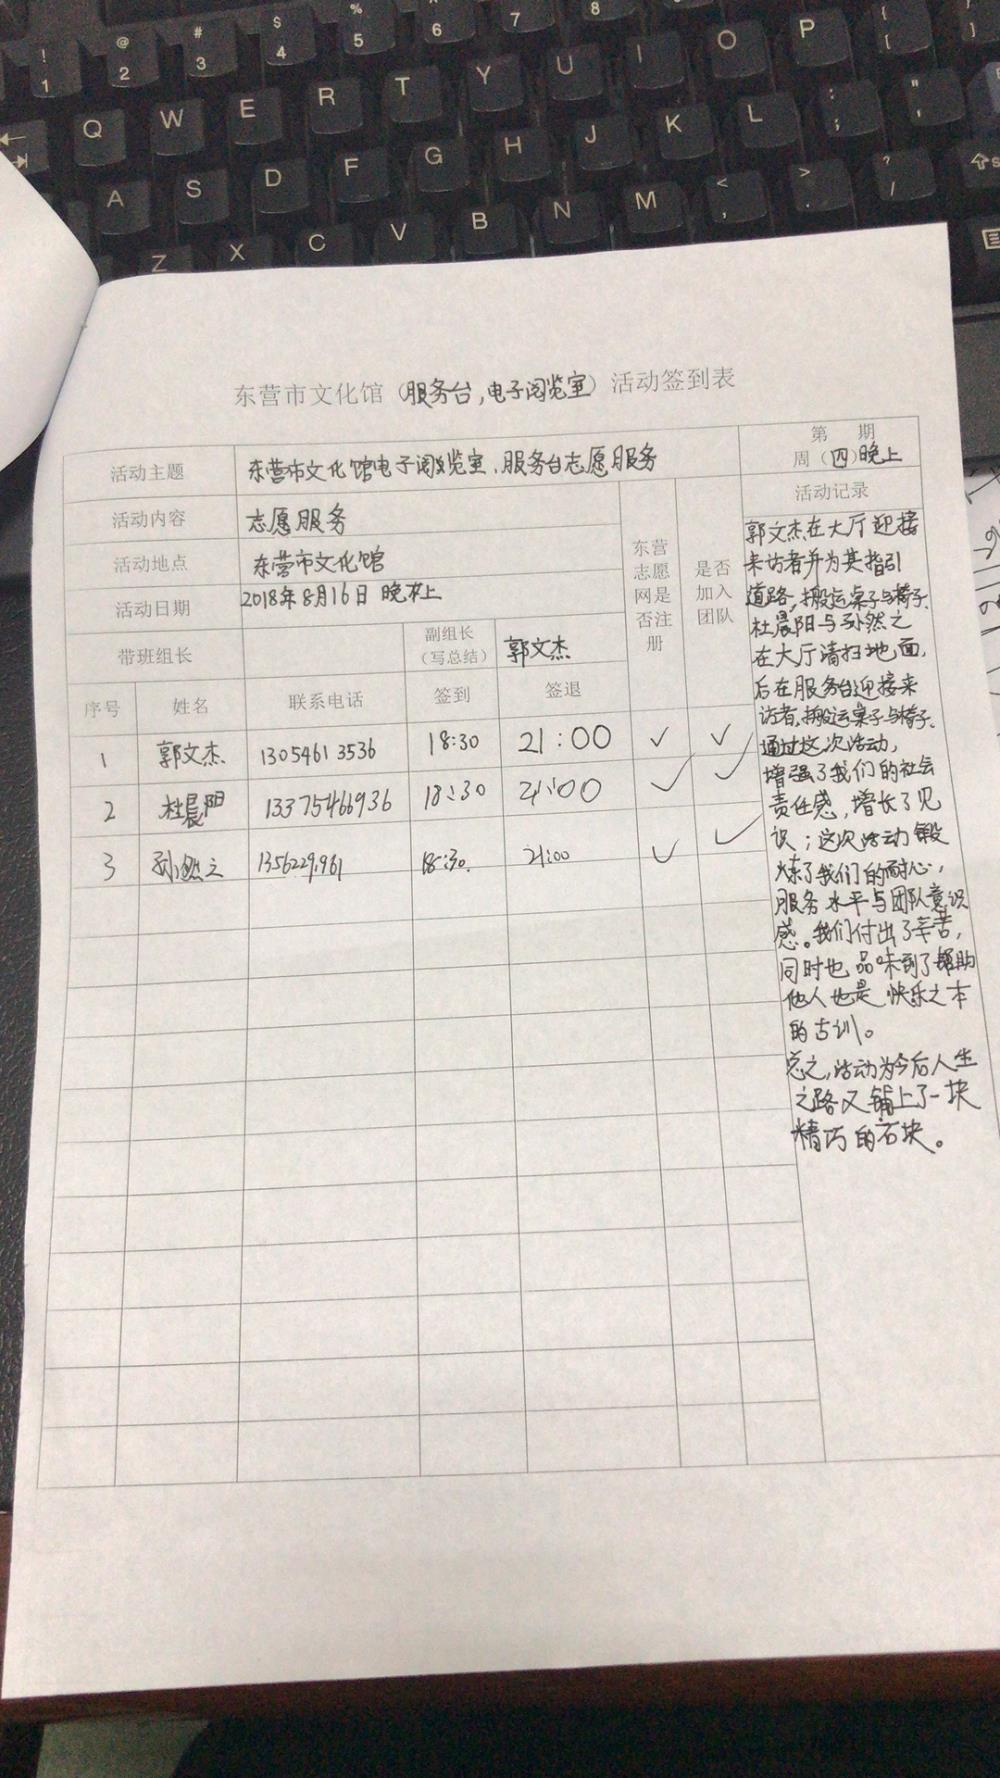 ! 1 @ 2 # 3 $ 4 % 5 6 7 8
Q W E R T Y U I O P { [ } ]
A S D F G H J K L : ; " '
Z X C V B N M < , > . ? /
东营市文化馆（服务台,电子阅览室）活动签到表
活动主题 东营市文化馆电子阅览室、服务台志愿服务 第 期
周（四）晚上
活动内容 志愿服务
活动地点 东营市文化馆
活动日期 2018年8月16日 晚上
带班组长 副组长（写总结） 郭文杰
东营志愿网是否注册
是否加入团队
序号 姓名 联系电话 签到 签退
1 郭文杰 13054613536 18:30 21:00 ✓ ✓
2 杜晨阳 13375466936 18:30 21:00 ✓ ✓
3 孙然之 18:30 21:00 ✓ ✓
活动记录
郭文杰在大厅迎接
来访者并为其指引
道路,搬运桌子与椅子.
杜晨阳与孙然之
在大厅清扫地面,
后在服务台迎接来
访者,搬运桌子与椅子.
通过这次活动,
增强了我们的社会
责任感,增长了见
识；这次活动锻
炼了我们的耐心,
服务水平与团队意识
感。我们付出了辛苦,
同时也品味到了帮助
他人也是快乐之本
的古训。
总之,活动为今后人生
之路又铺上了一块
精巧的石块。